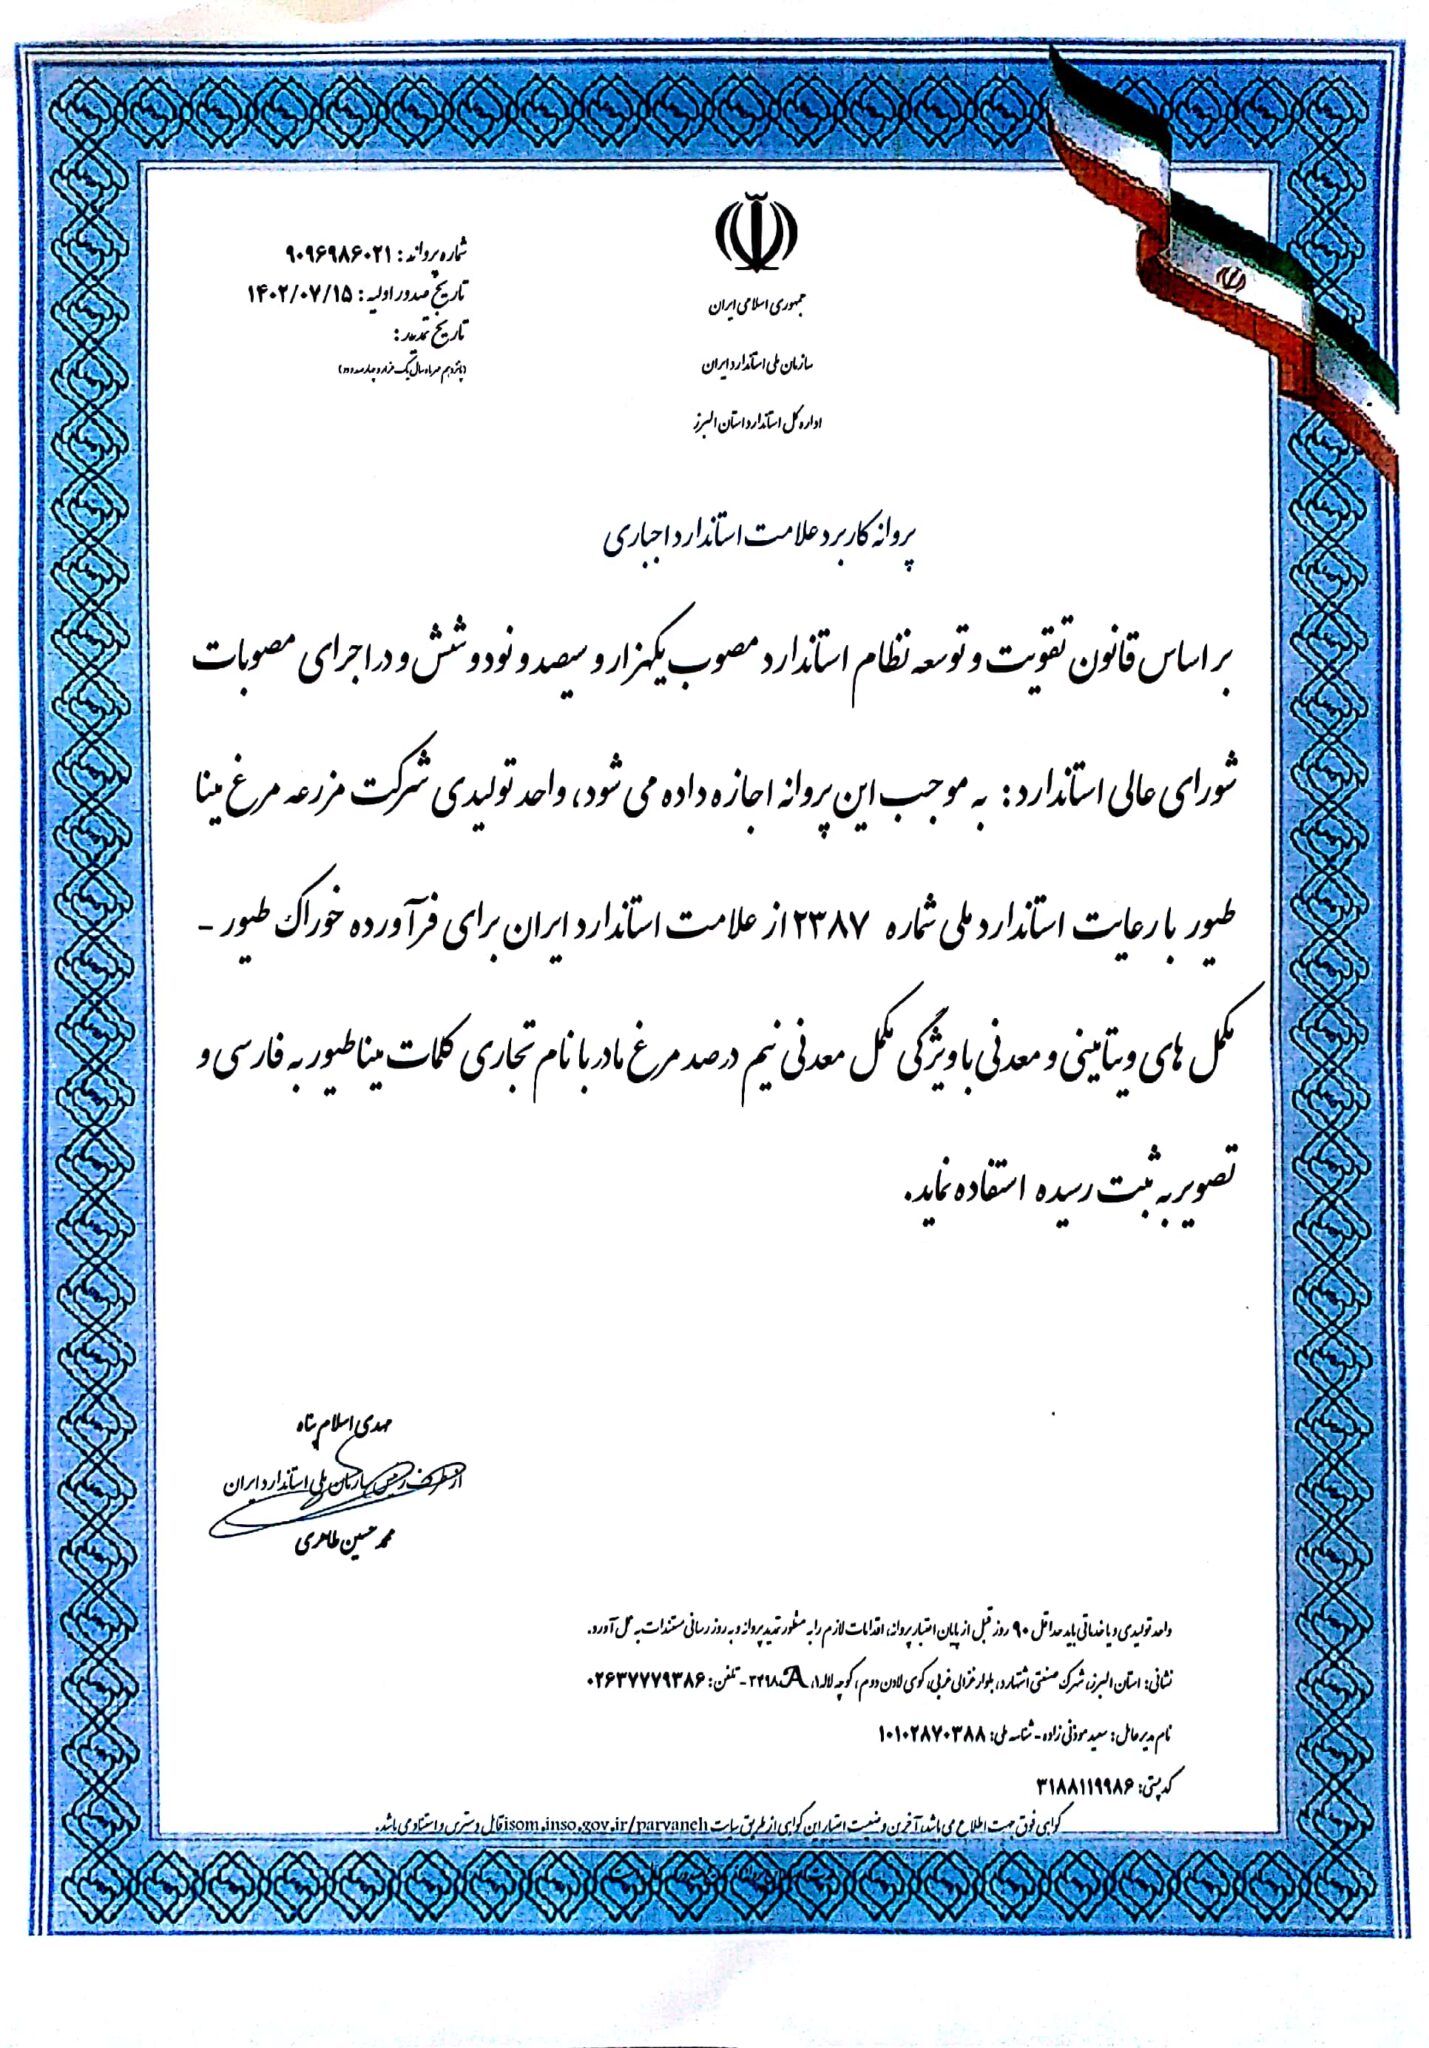 جمهوری اسلامی ایران
سازمان ملی استاندارد ایران
اداره کل استاندارد استان البرز
شماره پروانه: ۹۰۹۶۹۸۶۰۲۱
تاریخ صدور اولیه: ۱۴۰۲/۰۷/۱۵
تاریخ تمدید:
(پانزدهم مهر ماه سال یک هزار و چهارصد و دو)
پروانه کاربرد علامت استاندارد اجباری
بر اساس قانون تقویت و توسعه نظام استاندارد مصوب یکهزار و سیصد و نود و شش و در اجرای مصوبات
شورای عالی استاندارد: به موجب این پروانه اجازه داده می شود، واحد تولیدی شرکت مزرعه مرغ مینا
طیور با رعایت استاندارد ملی شماره ۲۳۸۷ از علامت استاندارد ایران برای فرآورده خوراک طیور -
مکمل های ویتامینی و معدنی با ویژگی مکمل معدنی نیم درصد مرغ مادر با نام تجاری کلمات مینا طیور به فارسی و
تصویر به ثبت رسیده استفاده نماید.
مهدی اسلام پناه
از طرف رئیس سازمان ملی استاندارد ایران
محمد حسین طاهری
واحد تولیدی و یا خدماتی باید حداقل ۹۰ روز قبل از پایان اعتبار پروانه، اقدامات لازم را به منظور تمدید پروانه و به روز رسانی مستندات به عمل آورد.
نشانی: استان البرز، شهرک صنعتی اشتهارد، بلوار غزالی غربی، کوی لادن دوم، کوچه لاله ۱، A، ۳۲۹۸ - تلفن: ۰۲۶۳۷۷۷۹۳۸۶
نام مدیر عامل: سعید موذنی زاده - شناسه ملی: ۱۰۱۰۲۸۷۰۳۸۸
کد پستی: ۳۱۸۸۱۱۹۹۸۶
گواهی فوق جهت اطلاع می باشد، آخرین وضعیت اعتبار این گواهی از طریق سایت isom.inso.gov.ir/parvaneh قابل دسترس و استناد می باشد.